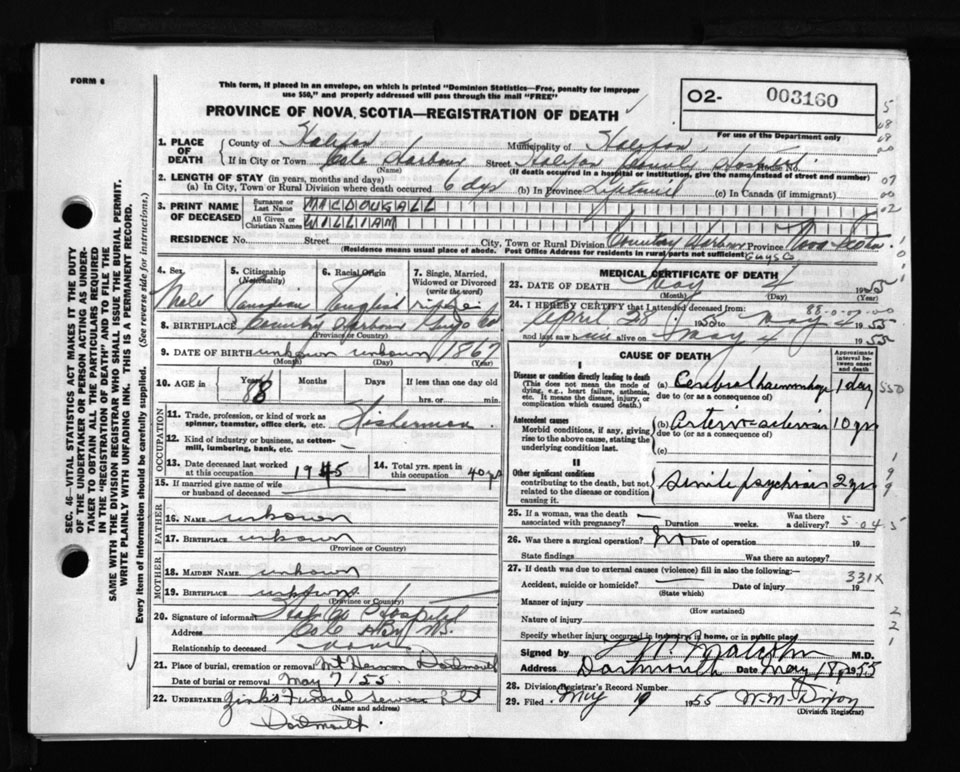 FORM 6
This form, if placed in an envelope, on which is printed "Dominion Statistics—Free, penalty for improper
use $50," and properly addressed will pass through the mail "FREE"
PROVINCE OF NOVA SCOTIA—REGISTRATION OF DEATH
02- 003160
For use of the Department only
1. PLACE OF DEATH
County of Halifax Municipality of Halifax
If in City or Town Cole Harbour Street Halifax County Hospital House No.
(Name) (If death occurred in hospital or institution, give the name instead of street and number)
2. LENGTH OF STAY (in years, months and days)
(a) In City, Town or Rural Division where death occurred 6 dys (b) In Province Lifetime (c) In Canada (if immigrant)
3. PRINT NAME OF DECEASED
Surname or Last Name MACDOUGALL
All Given or Christian Names WILLIAM
RESIDENCE No. Street City, Town or Rural Division Country Harbour Province Nova Scotia
(Residence means usual place of abode. Post Office Address for residents in rural parts not sufficient) Guys Co
4. Sex Male
5. Citizenship (Nationality) Canadian
6. Racial Origin English
7. Single, Married, Widowed or Divorced (write the word) single
8. BIRTHPLACE Country Harbour Guys Co
(Province or Country)
9. DATE OF BIRTH unkown unkown 1867
(Month) (Day) (Year)
10. AGE in Years 88 Months Days If less than one day old
hrs. or min.
OCCUPATION
11. Trade, profession, or kind of work as spinner, teamster, office clerk, etc. Fisherman
12. Kind of industry or business, as cotton-mill, lumbering, bank, etc.
13. Date deceased last worked at this occupation 1945
14. Total yrs. spent in this occupation 40 yrs
15. If married give name of wife or husband of deceased
FATHER
16. NAME unkown
17. BIRTHPLACE unkown
(Province or Country)
MOTHER
18. MAIDEN NAME unkown
19. BIRTHPLACE unkown
(Province or Country)
20. Signature of informant Hfx Co Hospital
Address Cole Hbr NS.
Relationship to deceased none
21. Place of burial, cremation or removal Mt Hermon Dartmouth
Date of burial or removal May 7/55.
22. UNDERTAKER Zink's Funeral Service Ltd
(Name and address)
Dartmouth.
MEDICAL CERTIFICATE OF DEATH
23. DATE OF DEATH May 4 1955
(Month) (Day) (Year)
24. I HEREBY CERTIFY that I attended deceased from:
April 28 1955 to May 4 1955
and last saw him alive on May 4 1955
CAUSE OF DEATH
Approximate interval between onset and death
I
Disease or condition directly leading to death
(This does not mean the mode of dying, e.g., heart failure, asthenia, etc. It means the disease, injury, or complication which caused death.)
(a) Cerebral haemorrhage 1 day
due to (or as a consequence of)
Antecedent causes
Morbid conditions, if any, giving rise to the above cause, stating the underlying condition last.
(b) Arteriosclerosis 10 yrs
due to (or as a consequence of)
(c)
II
Other significant conditions
contributing to the death, but not related to the disease or condition causing it.
Senile psychosis 2 yrs
25. If a woman, was the death associated with pregnancy? Duration weeks. Was there a delivery?
26. Was there a surgical operation? No Date of operation 19
State findings Was there an autopsy?
27. If death was due to external causes (violence) fill in also the following:—
Accident, suicide or homicide? Date of injury 19
(State which)
331X
Manner of injury
(How sustained)
Nature of injury
Specify whether injury occurred in industry, in home, or in public place
Signed by Malcolm M.D.
Address Dartmouth Date May 18 1955
28. Division Registrar's Record Number
29. Filed May 19 1955 W.M. Dixon
(Division Registrar)
SEC. 46—VITAL STATISTICS ACT MAKES IT THE DUTY
OF THE UNDERTAKER OR PERSON ACTING AS UNDER-
TAKER TO OBTAIN ALL THE PARTICULARS REQUIRED
IN THE "REGISTRATION OF DEATH" AND TO FILE THE
SAME WITH THE DIVISION REGISTRAR WHO SHALL ISSUE THE BURIAL PERMIT.
WRITE PLAINLY WITH UNFADING INK. THIS IS A PERMANENT RECORD.
Every item of information should be carefully supplied. (See reverse side for instructions.)